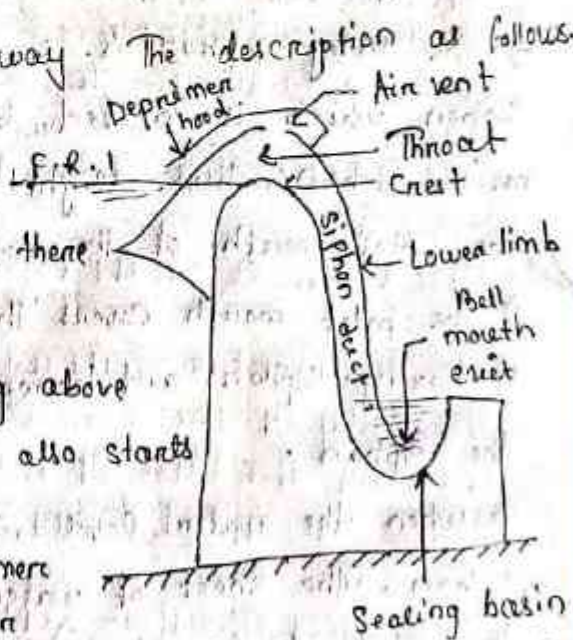 way. The description as follows.
Deprimer
hood.
Air vent
F.R.l
Throat
Crest
there
Siphon duct
Lower limb
Bell
mouth
exit
g above
also starts
mer
n
Sealing basin